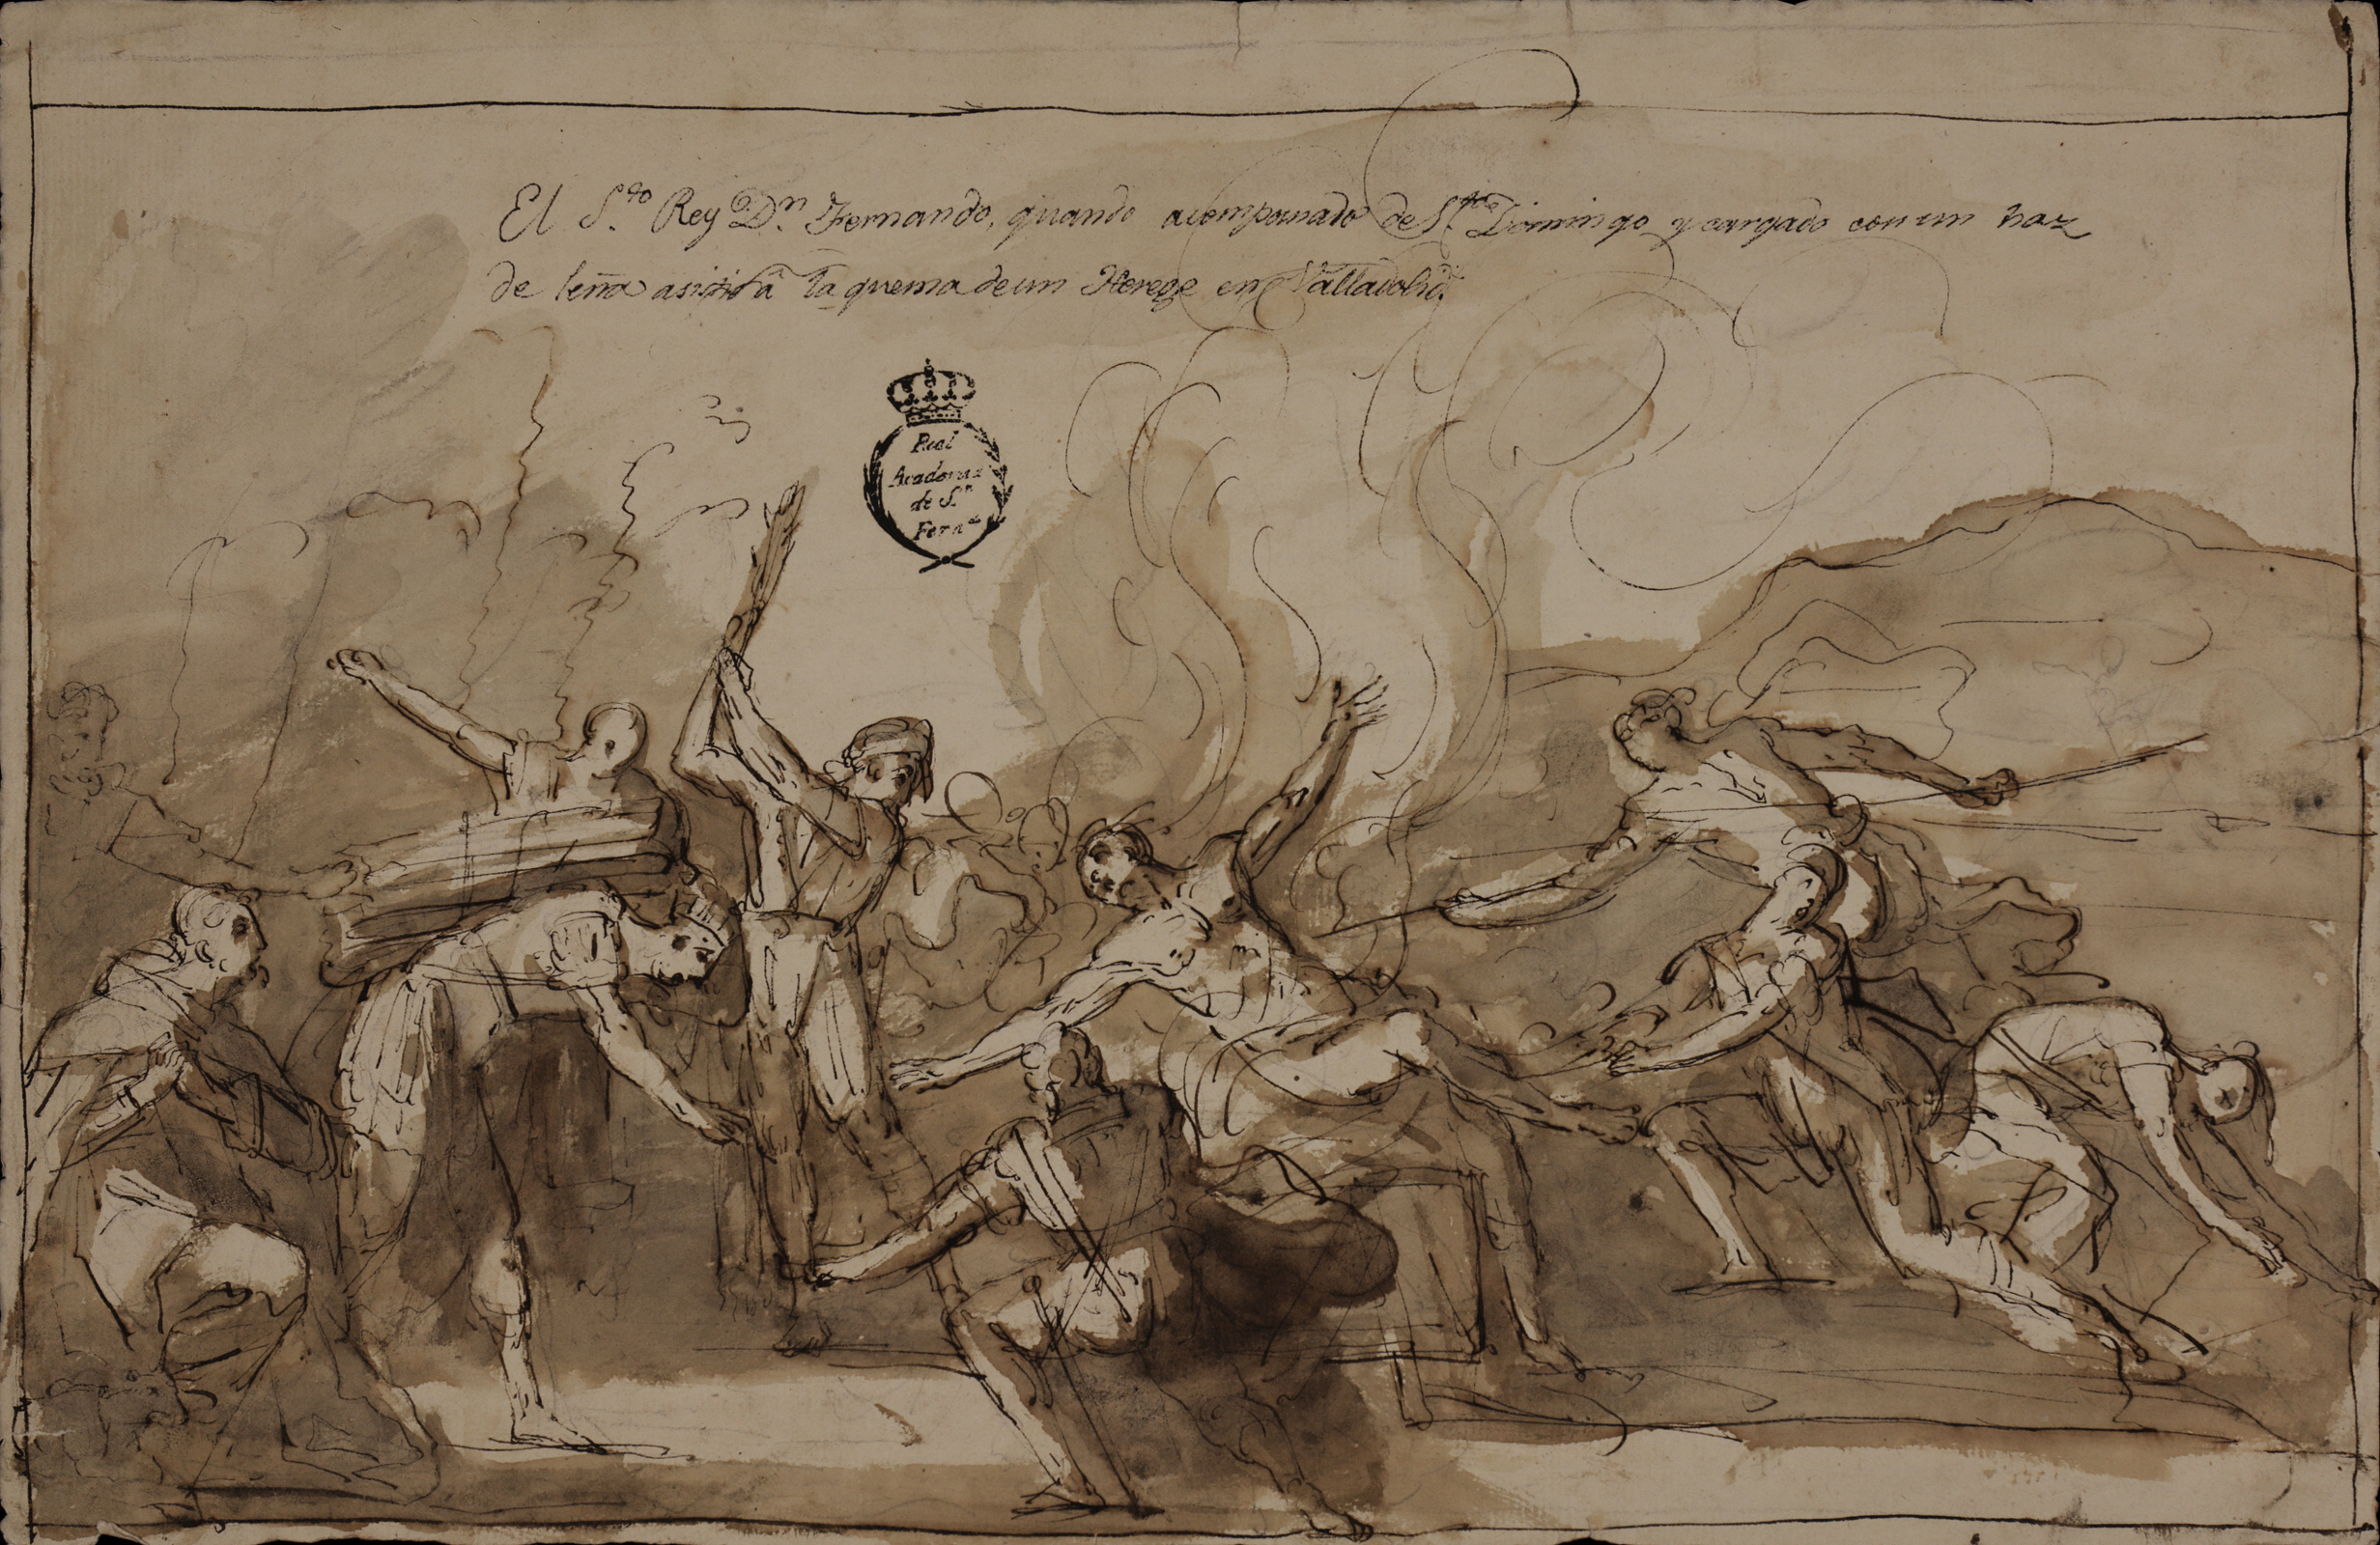 El S.to Rey D.n Fernando, quando acompañado de S.to Domingo y cargado con un haz
de leña asistió â la quema de un Herege en Valladolid.
Real
Academia
de S.n
Fern.do